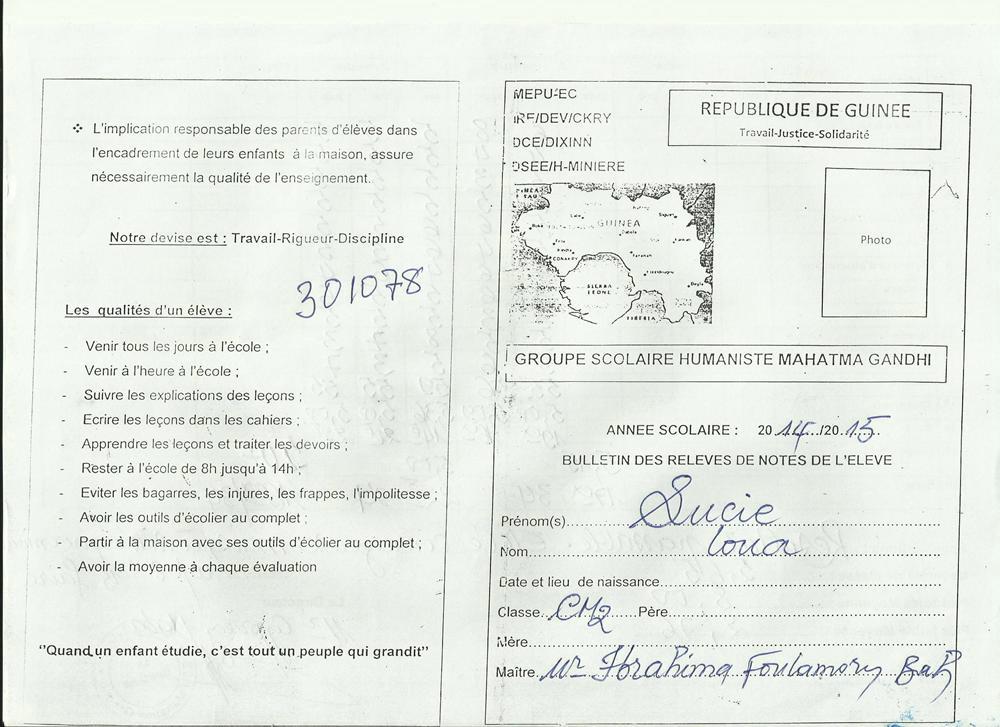 ❖ L'implication responsable des parents d'élèves dans
l'encadrement de leurs enfants à la maison, assure
nécessairement la qualité de l'enseignement.
Notre devise est : Travail-Rigueur-Discipline
301078
Les qualités d'un élève :
- Venir tous les jours à l'école ;
- Venir à l'heure à l'école ;
- Suivre les explications des leçons ;
- Ecrire les leçons dans les cahiers ;
- Apprendre les leçons et traiter les devoirs ;
- Rester à l'école de 8h jusqu'à 14h ;
- Eviter les bagarres, les injures, les frappes, l'impolitesse ;
- Avoir les outils d'écolier au complet ;
- Partir à la maison avec ses outils d'écolier au complet ;
- Avoir la moyenne à chaque évaluation
"Quand un enfant étudie, c'est tout un peuple qui grandit"
MEPU-EC
IRE/DEV/CKRY
DCE/DIXINN
DSEE/H-MINIERE
REPUBLIQUE DE GUINEE
Travail-Justice-Solidarité
GUINEA
CONAKRY
SIERRA
LEONE
LIBERIA
Photo
GROUPE SCOLAIRE HUMANISTE MAHATMA GANDHI
ANNEE SCOLAIRE : 2014/2015
BULLETIN DES RELEVES DE NOTES DE L'ELEVE
Prénom(s) Lucie
Nom Loua
Date et lieu de naissance
Classe CM2 Père
Mère
Maître Mr Ibrahima Foulamory Bah